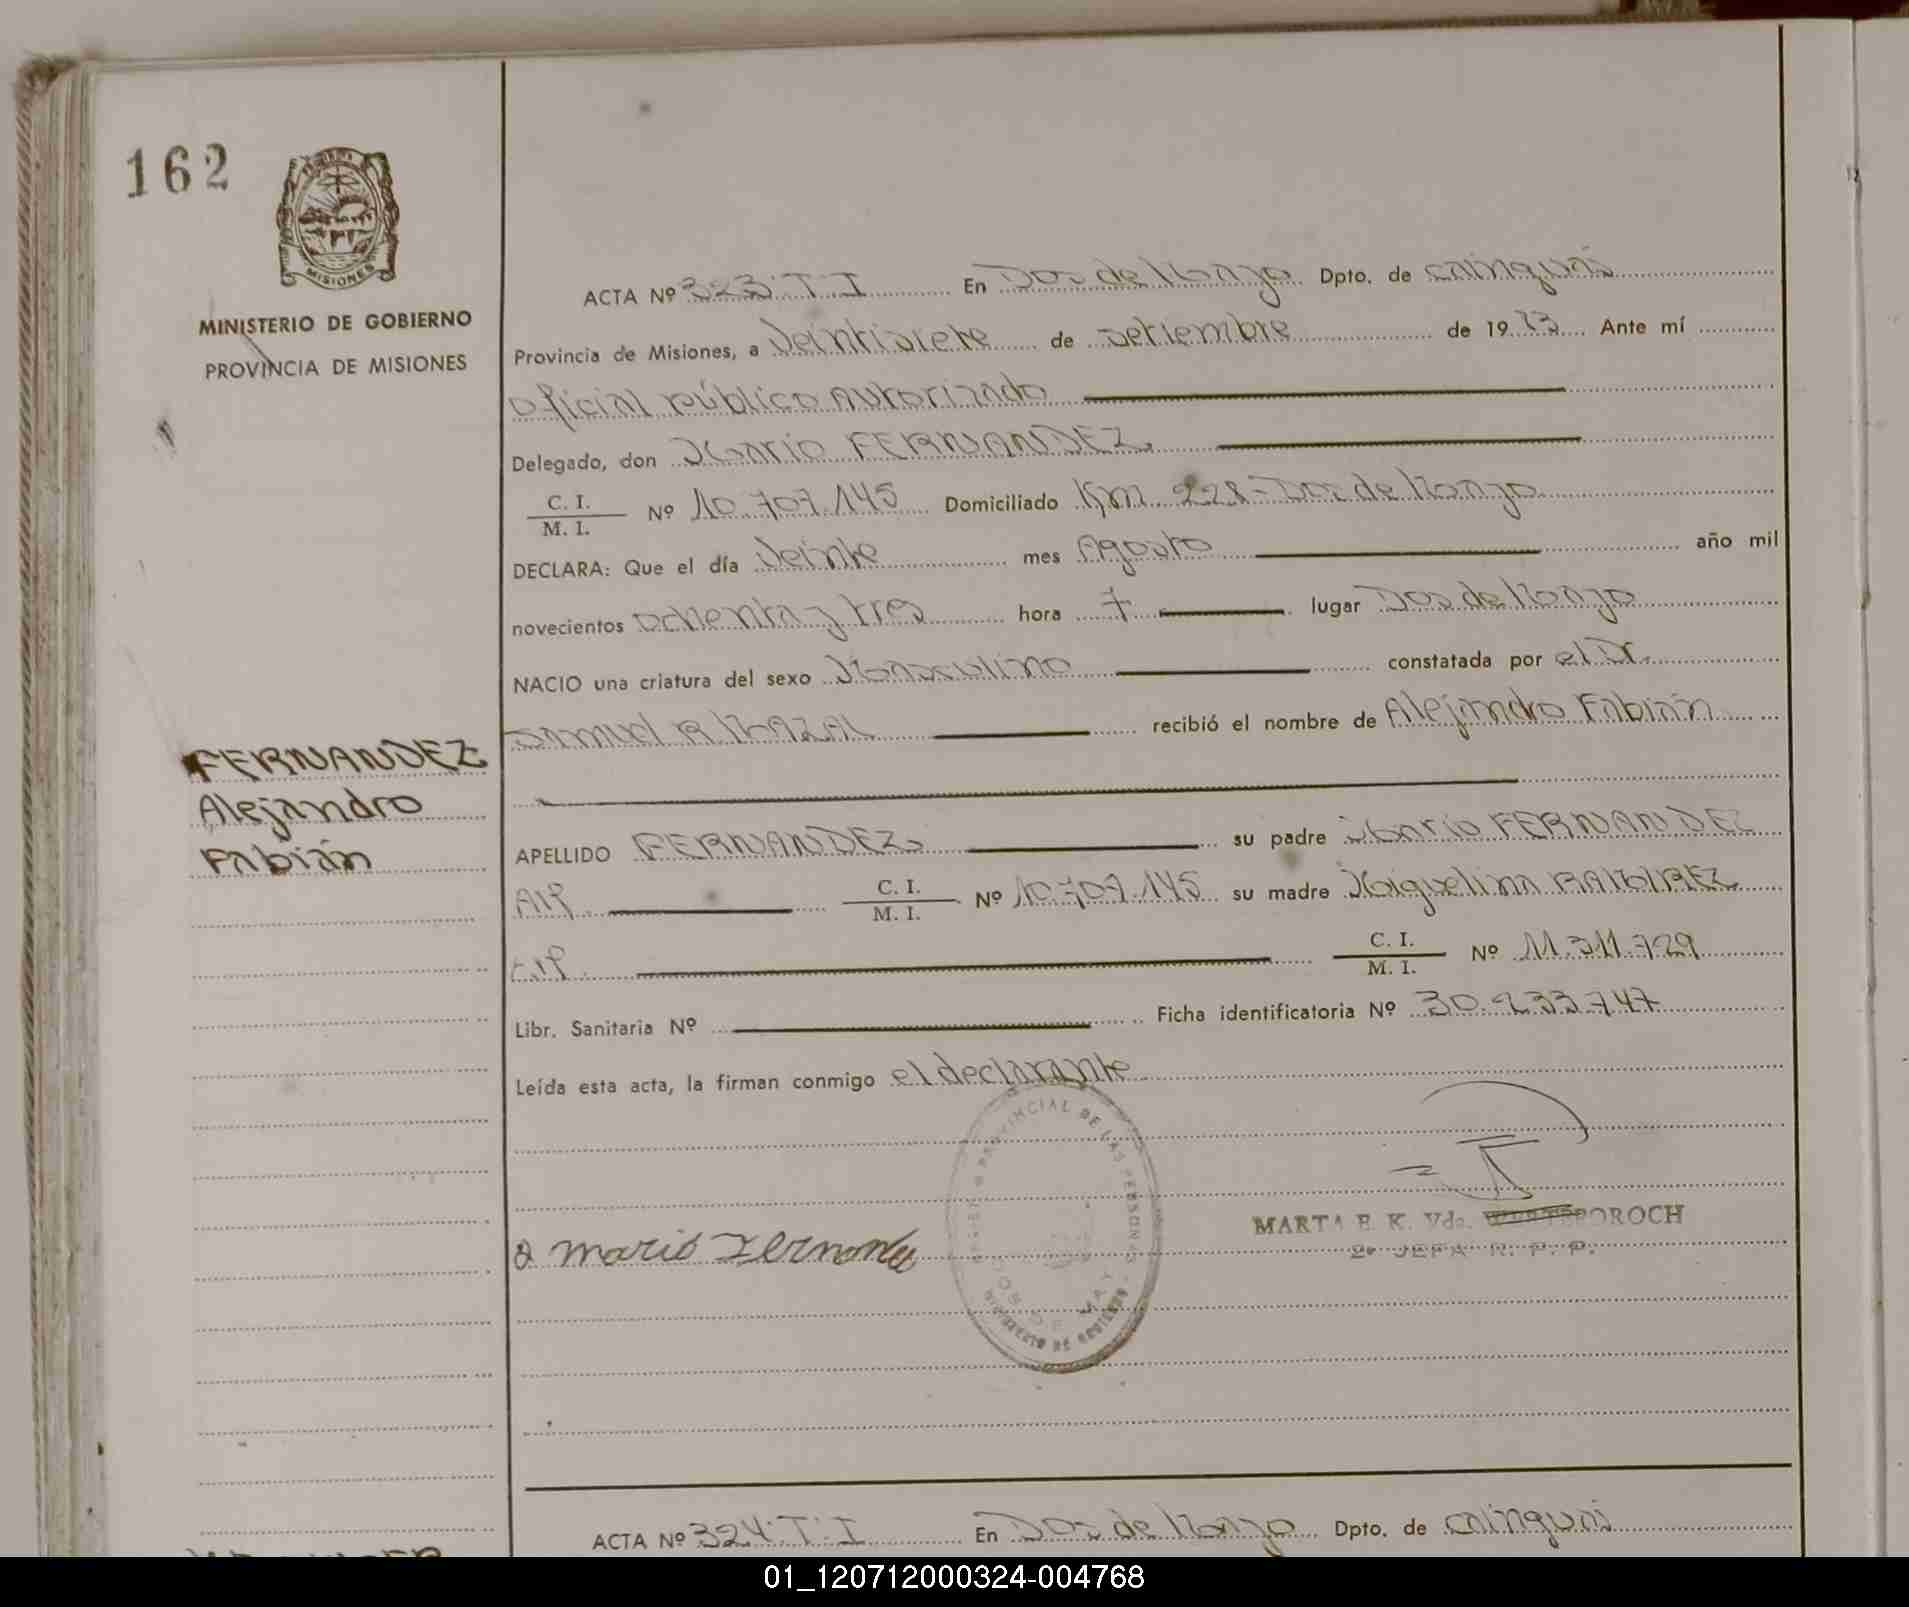 162
MISIONES
MINISTERIO DE GOBIERNO
PROVINCIA DE MISIONES
FERNANDEZ
Alejandro
Fabián
ACTA Nº 323·T·I En Dos de Mayo Dpto. de Cainguás
Provincia de Misiones, a Veintisiete de setiembre de 19 83 Ante mí
Oficial público Autorizado
Delegado, don Mario FERNANDEZ
C. I.
M. I. Nº 10.707.145 Domiciliado Km 228 - Dos de Mayo
DECLARA: Que el día Veinte mes Agosto año mil
novecientos Ochenta y tres hora 7 lugar Dos de Mayo
NACIO una criatura del sexo Masculino constatada por el Dr.
Samuel R. MAZAL recibió el nombre de Alejandro Fabián
APELLIDO FERNANDEZ su padre Mario FERNANDEZ
C. I.
M. I. Nº 10.707.145 su madre Miguelina RAMIREZ
C. I.
M. I. Nº 11.311.729
Libr. Sanitaria Nº Ficha identificatoria Nº 30.233.747
Leída esta acta, la firman conmigo el declarante
PROVINCIAL DE LAS PERSONAS
DOS DE MAYO
MINISTERIO DE GOBIERNO
MARTA E. K. Vda. POROCH
2º JEFA R. P. P.
mario Fernande
ACTA Nº 324·T·I En Dos de Mayo Dpto. de Cainguás
01_120712000324-004768